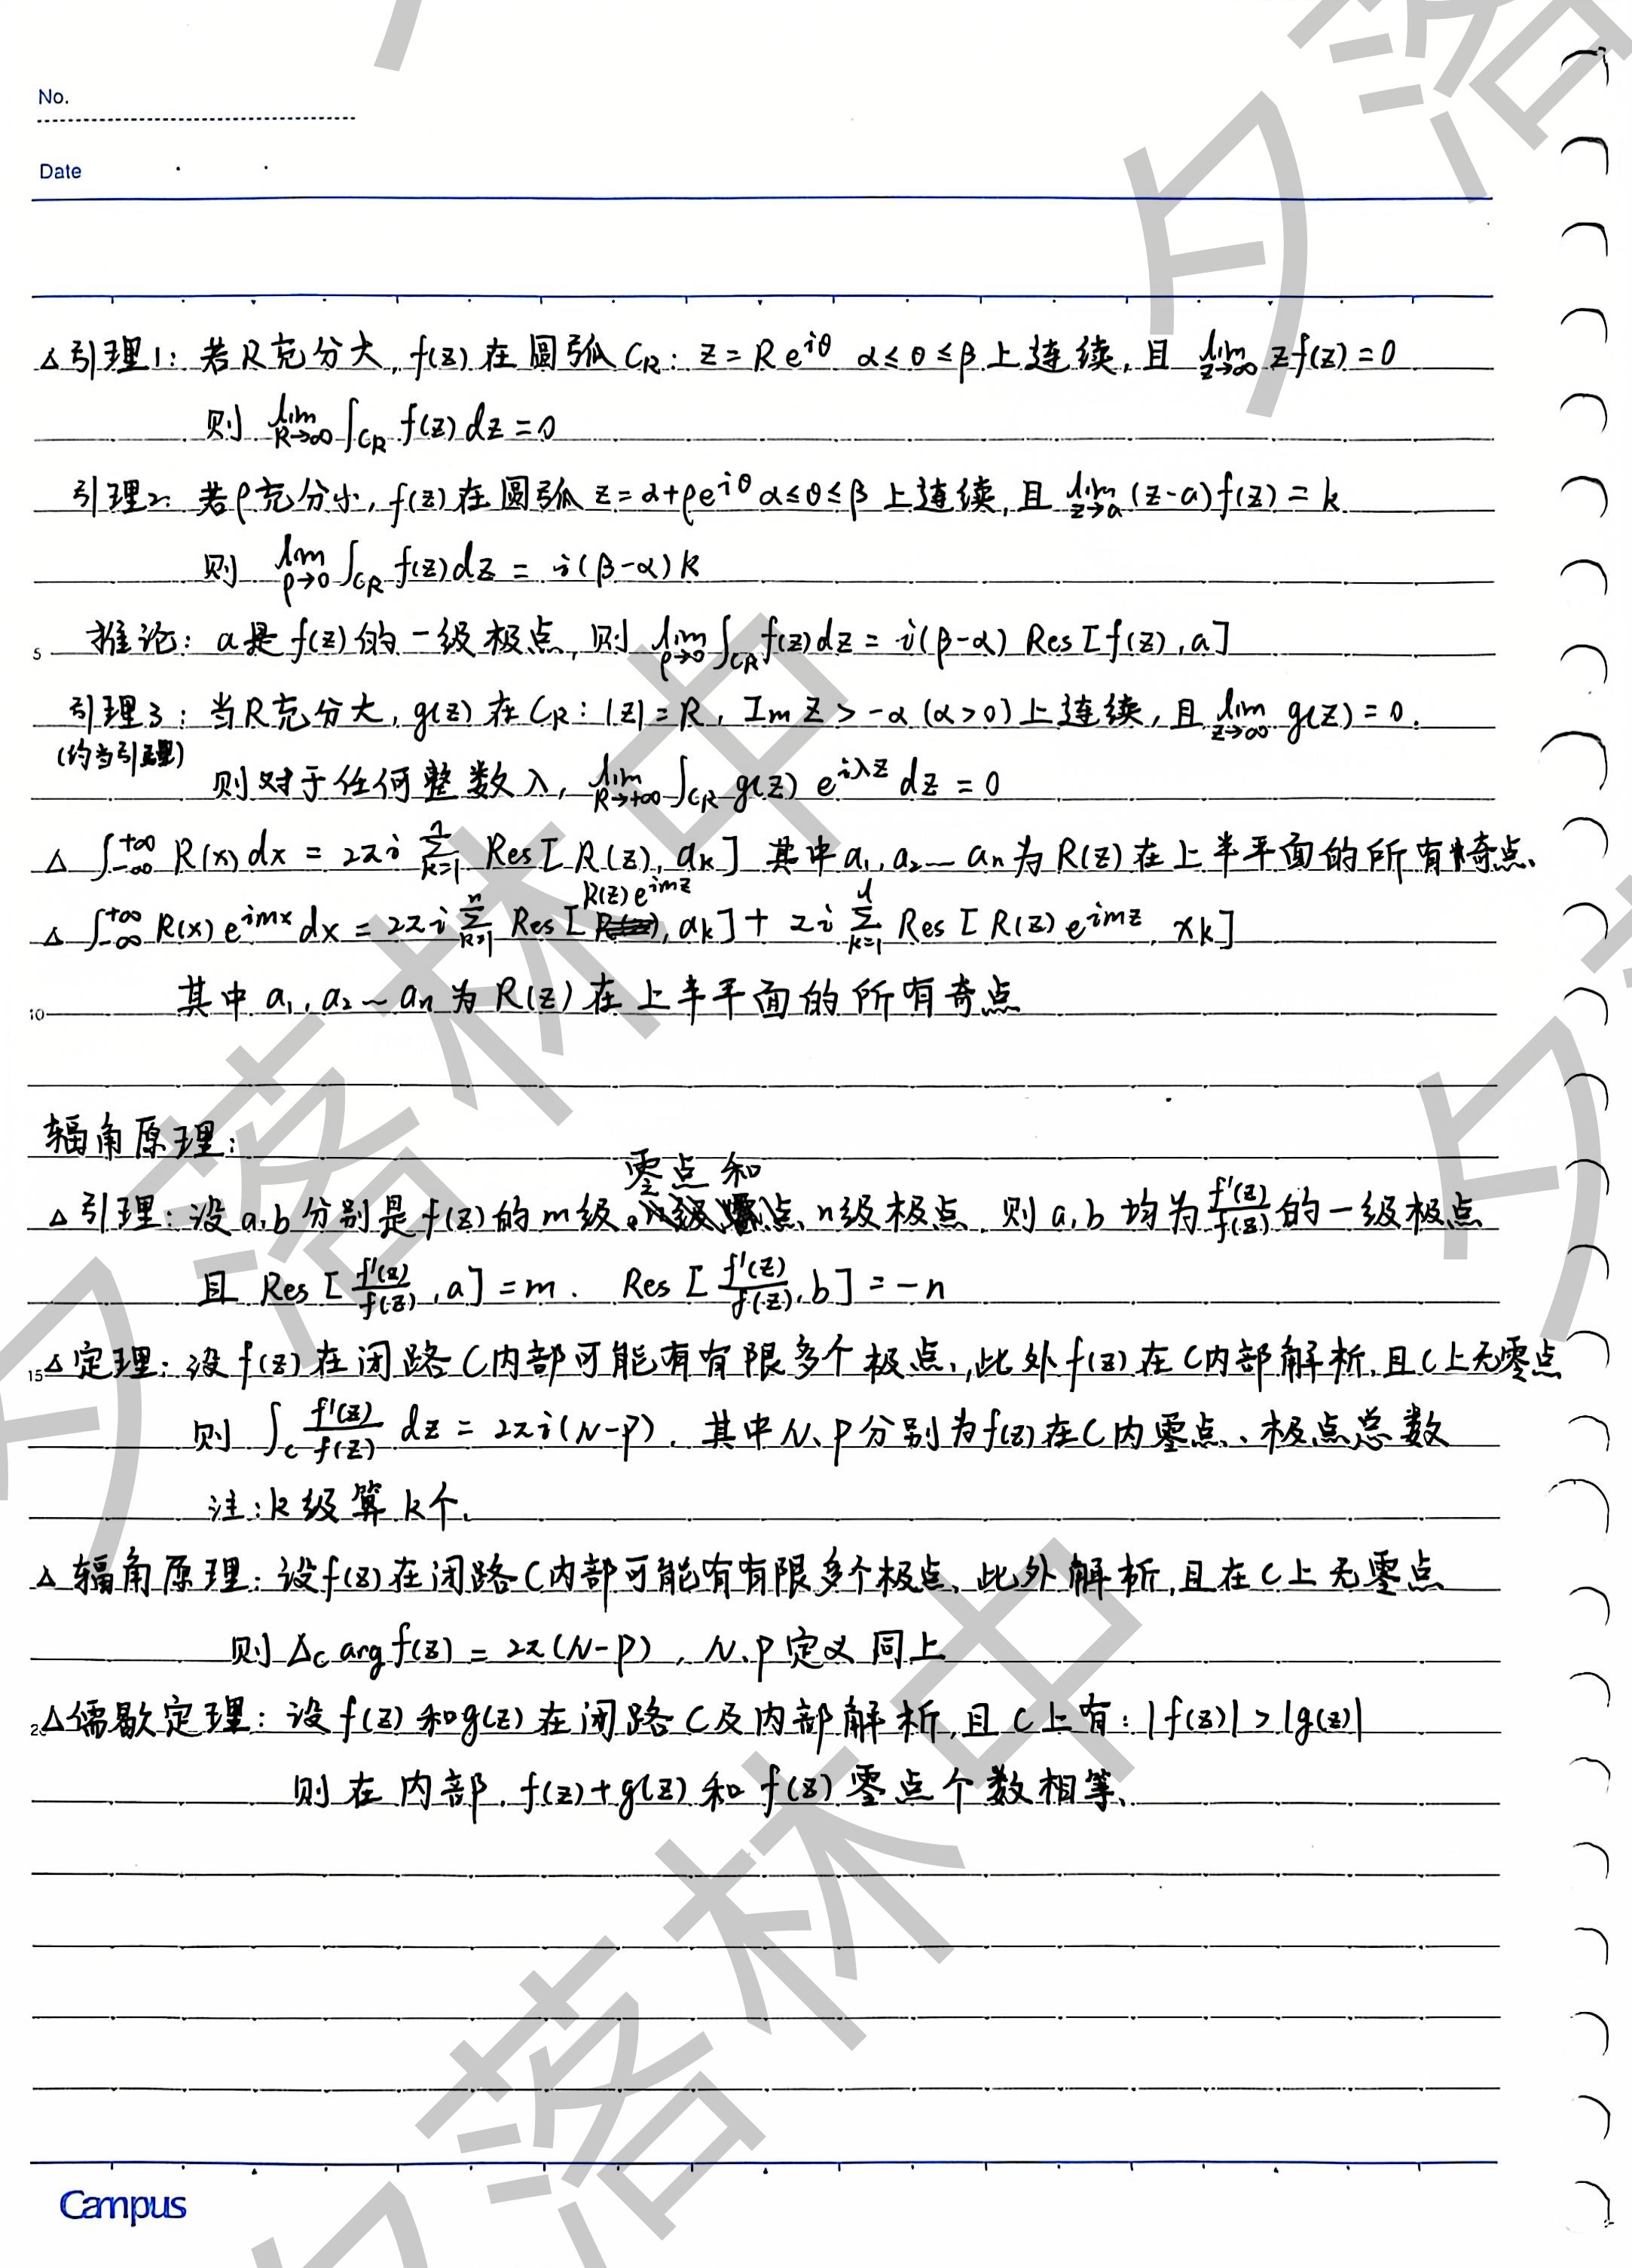 No.
Date
△引理1: 若R充分大, f(z)在圆弧 C_R: z=Re^{iθ} α≤θ≤β上连续, 且 lim_{z→∞} zf(z)=0
则 lim_{R→∞} ∫_{C_R} f(z)dz=0
引理2: 若ρ充分小, f(z)在圆弧 z=α+ρe^{iθ} α≤θ≤β 上连续, 且 lim_{z→a} (z-a)f(z)=k
则 lim_{ρ→0} ∫_{C_R} f(z)dz = i(β-α)k
5 推论: a是f(z)的一级极点, 则 lim_{ρ→0} ∫_{C_R} f(z)dz = i(β-α) Res[f(z),a]
引理3: 当R充分大, g(z)在C_R: |z|=R, Im z>-α (α>0)上连续, 且 lim_{z→∞} g(z)=0.
(约当引理)
则对于任何整数λ, lim_{R→+∞} ∫_{C_R} g(z) e^{iλz} dz=0
△ ∫_{-∞}^{+∞} R(x)dx = 2πi ∑_{k=1}^{n} Res[R(z), a_k] 其中a_1, a_2~a_n为R(z)在上半平面的所有奇点.
△ ∫_{-∞}^{+∞} R(x)e^{imx}dx = 2πi ∑_{k=1}^{n} Res[R(z)e^{imz}, a_k] + πi ∑_{k=1}^{l} Res[R(z)e^{imz}, x_k]
10 其中 a_1, a_2~a_n为R(z)在上半平面的所有奇点
辐角原理:
△引理: 设a,b分别是f(z)的m级零点和n级极点. 则a,b均为 f'(z)/f(z) 的一级极点
且 Res[f'(z)/f(z), a]=m. Res[f'(z)/f(z), b]=-n
15△定理: 设f(z)在闭路C内部可能有有限多个极点, 此外f(z)在C内部解析, 且C上无零点
则 ∫_C f'(z)/f(z) dz = 2πi(N-P). 其中N、P分别为f(z)在C内零点、极点总数
注: k级算k个.
△辐角原理: 设f(z)在闭路C内部可能有有限多个极点、此外解析, 且在C上无零点
则 Δ_C arg f(z) = 2π(N-P), N、P定义同上
20△儒歇定理: 设f(z)和g(z)在闭路C及内部解析, 且C上有: |f(z)|>|g(z)|
则在内部, f(z)+g(z)和f(z)零点个数相等、
Campus
夕落林中
夕落林中